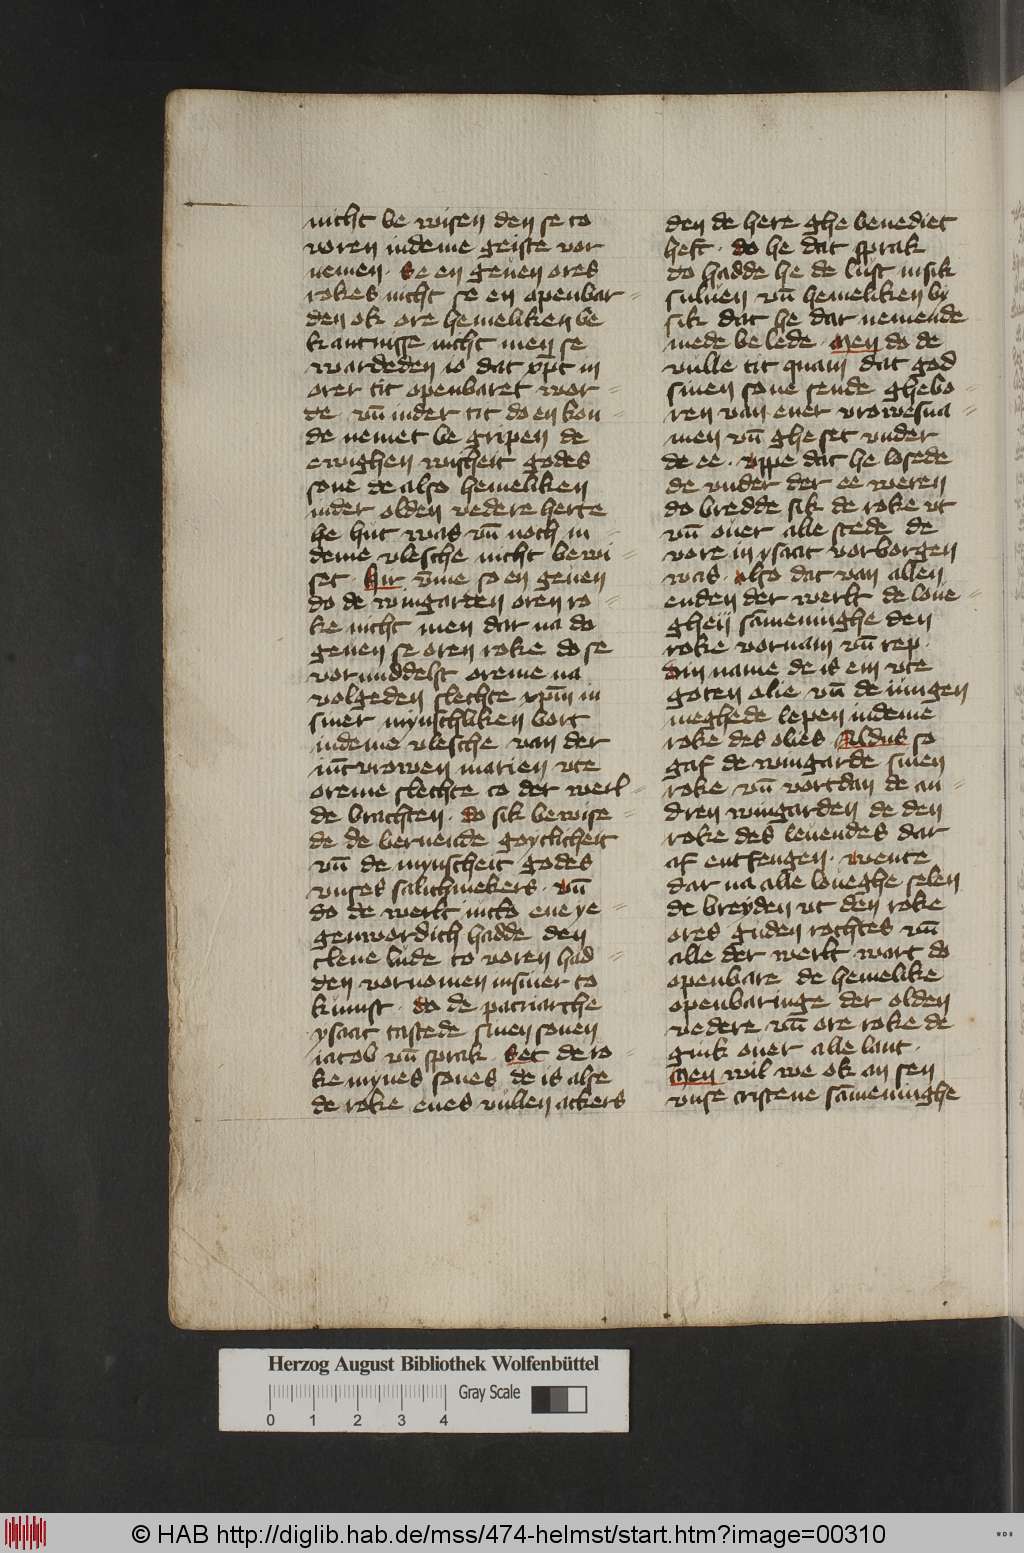 nicht be wisen den se to
voren indeme geiste vor
nemen · Se en geuen ores
rokes nicht se en openbar-
den ok ore hemeliken be
kantnisse nicht men se
wardeden io dat xpt in
orer tit openbaret wor-
de vn̄ inder tit do en kon-
de nemet be gripen de
ewighen wisheit godes
sone de also hemeliken
inder olden vedere herte
he hut was vn̄ noch in-
deme vlesche nicht bewi-
set · Hir v̄me so en geuen
do de wingarden oren ro-
ke nicht men dar na do
geuen se oren roke do se
vormiddelst oreme na
volgeden slechte xpm̄ in
siner mynschliken bort
indeme vlesche van der
iūcvrowen marien vte
oreme slechte to der werl-
de brachten · do sik bewise-
de de bernende gotlicheit
vn̄ de mynscheit godes
vnses salichmekers · vn̄
do de werlt nicht ene ye-
genwordich hadde den
clene lude to voren had-
den vornomen insiner to
kumst · do de patriarche
ysaac tastede sinen sonen
iacob vn̄ sprak · Set de ro-
ke mynes sones de is alse
de roke enes vullen ackers
den de here ghe benediet
heft · do he dat sprak
do hadde he de lust insik
suluen vn̄ hemeliken by
sik dat he dar nemende
mede be lede · Men do de
vulle tit quam dat god
sinen sone sende ghebo-
ren van ener vrowesna-
men vn̄ ghe set vnder
de ee · vppe dat he losede
de vnder der ee weren
do bredde sik de roke vt
vn̄ ouer alle stede de
vore in ysaac vorborgen
was · also dat van allen
enden der werlt de loue-
gheu sām̄eninghe den
roke vornam vn̄ rep ·
din name de is ein vte
goten olie vn̄ de iungen
meghede lepen indeme
roke des olies Aldus so
gaf de wingarde sinen
roke vn̄ vortdan de an-
dren wingarden de den
roke des leuendes dar
af entfengen · wente
dar na alle loueghe selen
de breyden vt den roke
ores guden rochtes vn̄
alle der werlt wart do
openbare de hemelike
openbaringe der olden
vedere vn̄ ore roke de
gink ouer alle lant ·
Men wil we ok an sen
vnse cristene sām̄eninghe
Herzog August Bibliothek Wolfenbüttel
Gray Scale
0 1 2 3 4
© HAB http://diglib.hab.de/mss/474-helmst/start.htm?image=00310